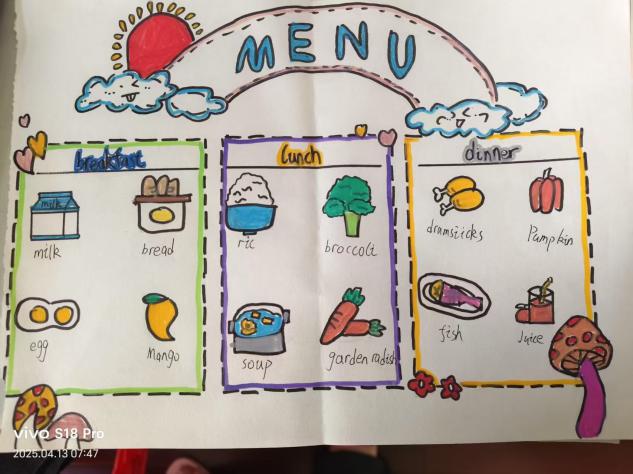 MENU
breakfast
lunch
dinner
milk
milk
bread
ric
broccoli
drumsticks
Pumpkin
egg
Mango
soup
garden radish
fish
Juice
vivo S18 Pro
2025.04.13 07:47